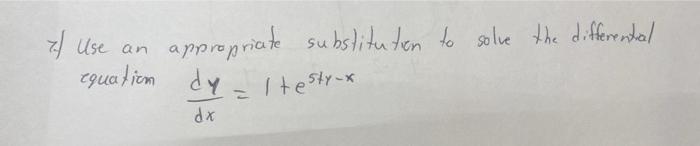 7) Use an appropriate substitution to solve the differential
equation dy/dx = 1+e^(5+y-x)